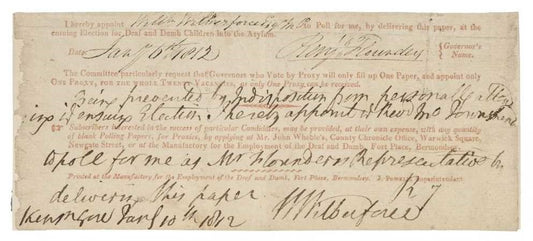 I hereby appoint Willm Wilberforce Esq M.P. to Poll for me, by delivering this paper, at the
ensuing Election for Deaf and Dumb Children into the Asylum.
Date Jany 6th 1812 Benjn Flounders Governor's Name.
The Committee particularly request that Governors who Vote by Proxy will only fill up One Paper, and appoint only
One Proxy, for the whole Twenty Vacancies, as only One Proxy can be received.
Being prevented by Indisposition from personally attend
ing Ensuing Election I hereby appoint Revd Mr Townshend
Subscribers interested in the success of particular Candidates, may be provided, at their own expense, with any quantity
of blank Polling Papers, for Proxies, by applying at Mr. John Wheble's, County Chronicle Office, Warwick Square,
Newgate Street, or at the Manufactory for the Employment of the Deaf and Dumb, Fort Place, Bermondsey.
to poll for me as Mr Flounders's Representative by
Printed at the Manufactory for the Employment of the Deaf and Dumb, Fort Place, Bermondsey. Superintendant
delivering this paper
W Wilberforce
Kensn Gore Jany 10th 1812